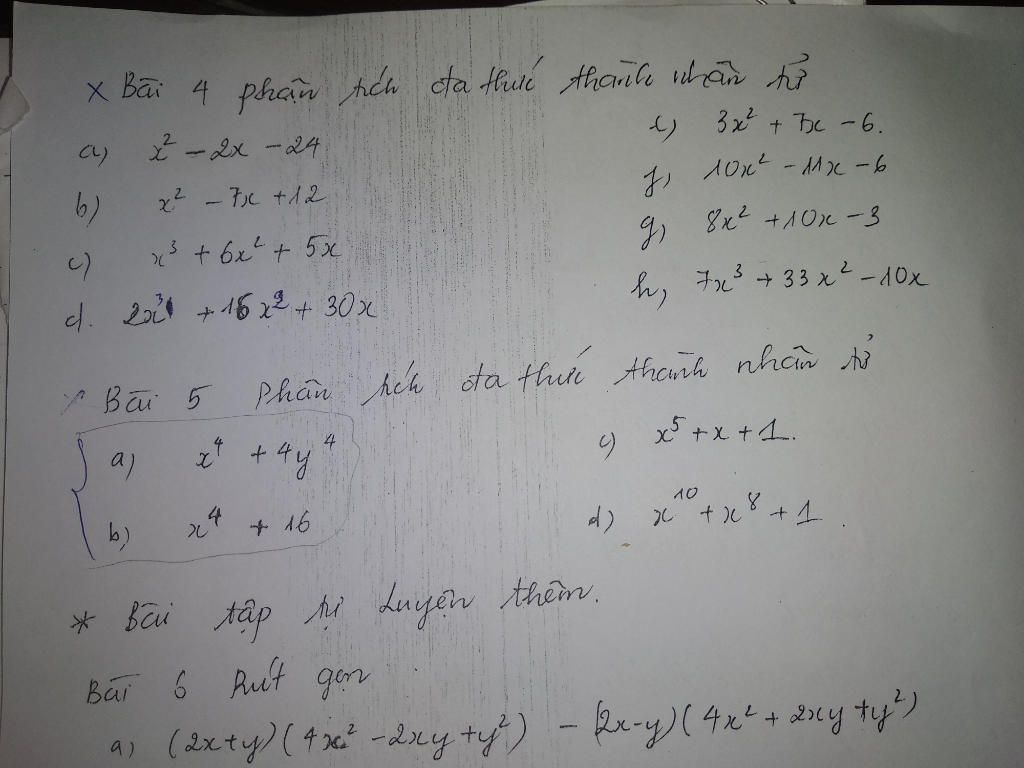 x Bài 4 phân tích đa thức thành nhân tử
a) x² - 2x - 24
b) x² - 7x + 12
c) x³ + 6x² + 5x
d. 2x³ + 16x² + 30x
e) 3x² + 7x - 6.
f) 10x² - 11x - 6
g) 8x² + 10x - 3
h) 7x³ + 33x² - 10x
x Bài 5 Phân tích đa thức thành nhân tử
a) x⁴ + 4y⁴
b) x⁴ + 16
c) x⁵ + x + 1.
d) x¹⁰ + x⁸ + 1.
* Bài tập tự luyện thêm.
Bài 6 Rút gọn
a) (2x+y)(4x² - 2xy + y²) - (2x-y)(4x² + 2xy + y²)